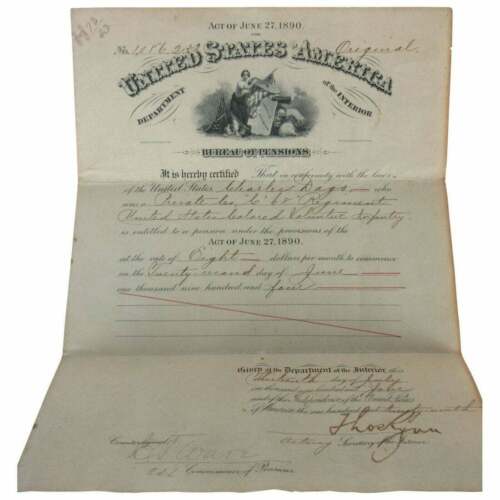 Act of June 27, 1890.
No.
Original.
United States of America
Department
of the Interior
Bureau of Pensions
It is hereby certified That in conformity with the laws
of the United States Charles Bags who
was a Private Co. "C" 68" Regiment
United States Colored Volunteer Infantry
is entitled to a pension under the provisions of the
Act of June 27, 1890.
at the rate of Eight dollars per month to commence
on the Twenty second day of June
one thousand nine hundred and four
Given at the Department of the Interior this
day of July
one thousand nine hundred and four
and of the Independence of the United States
of America the one hundred and twenty ninth
Thos Ryan
Acting Secretary of the Interior
Countersigned
Commissioner of Pensions